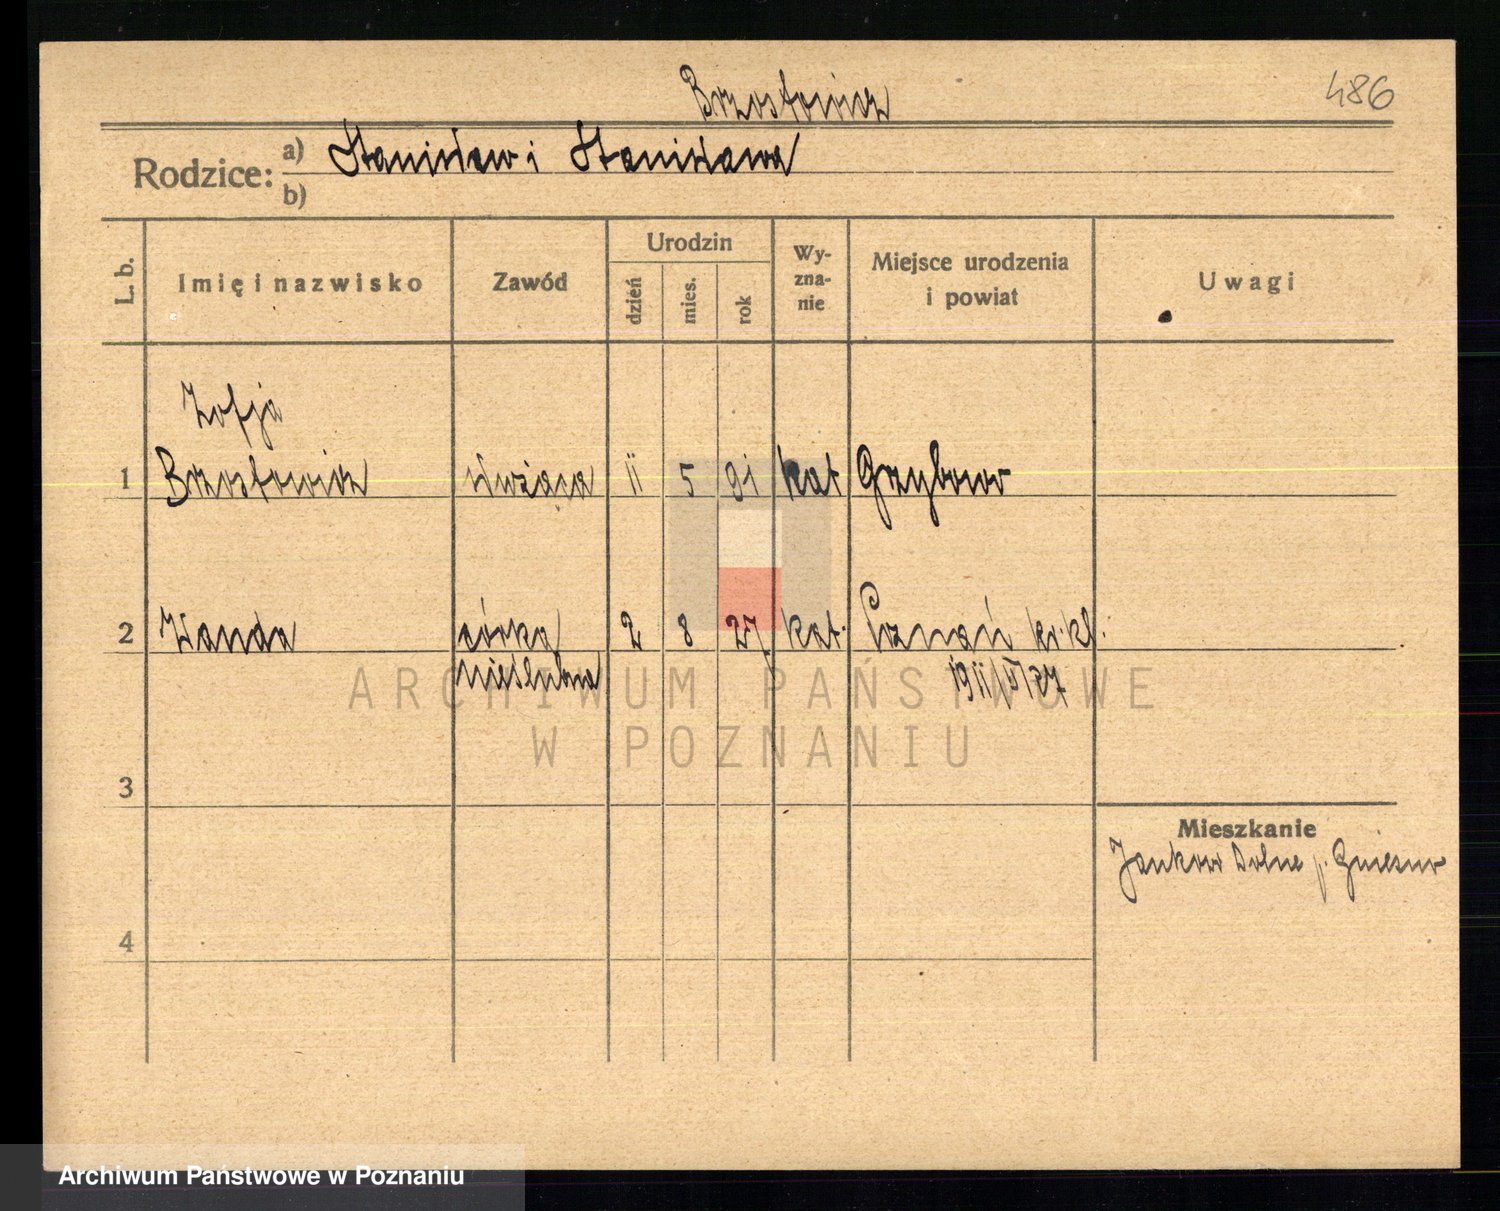 Brzostowicz
486
Rodzice: a) Stanisław i Stanisława
b)
L. b.
Imię i nazwisko
Zawód
Urodzin
dzień
mies.
rok
Wy-
zna-
nie
Miejsce urodzenia
i powiat
Uwagi
Zofja
1 Brzostowicz służąca 11 5 91 kat Grzybowo
2 Wanda córka 2 8 27 kat. Poznań kr. kl.
nieślubna
3
Mieszkanie
Jankowo Dolne p. Gniezno
4
ARCHIWUM PAŃSTWOWE
W POZNANIU
Archiwum Państwowe w Poznaniu